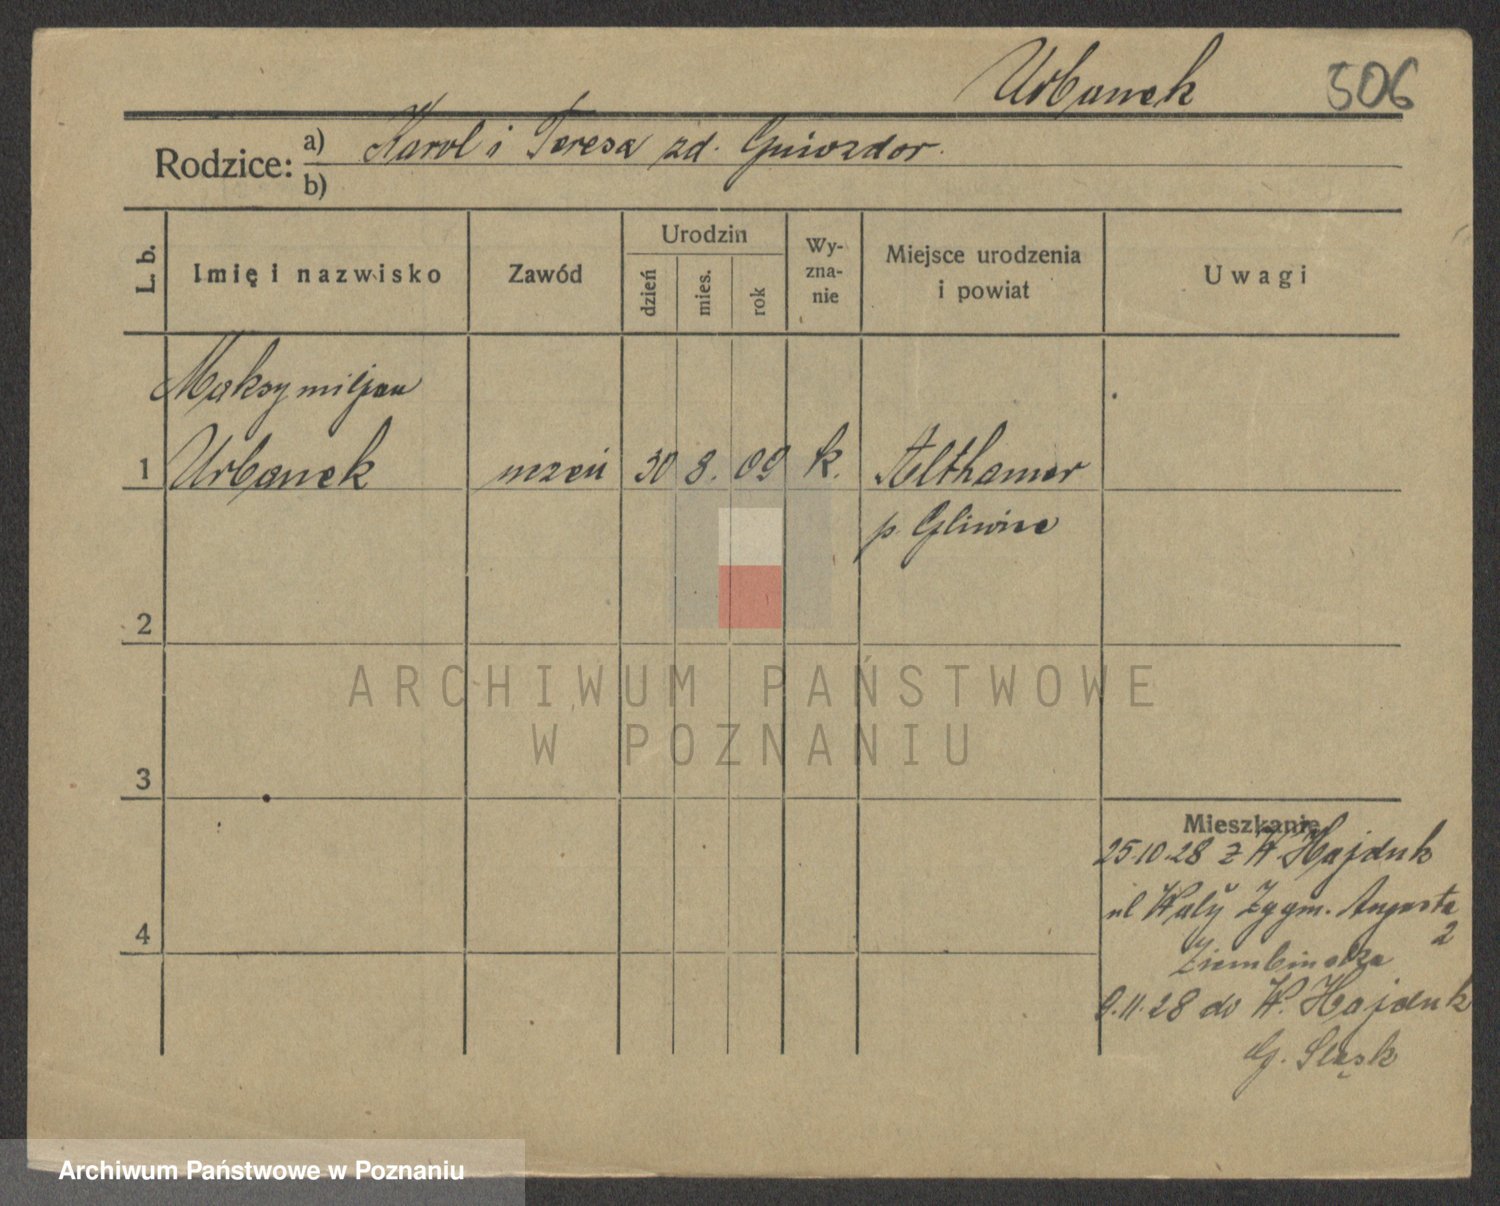 Urbanek 506
Rodzice: a) Karol i Teresa zd. Gniozdor.
b)
L. b.
Imię i nazwisko
Zawód
Urodzin
dzień
mies.
rok
Wy-
zna-
nie
Miejsce urodzenia
i powiat
Uwagi
Maksymiljan
1 Urbanek uczeń 30 8. 09 k. Althamer
p. Gliwice
2
ARCHIWUM PAŃSTWOWE
W POZNANIU
3
Mieszkanie
25.10.28 z W. Hajduk
ul Wały Zygm. Augusta
2
4
9.11.28 do W. Hajduk
G. Śląsk
Archiwum Państwowe w Poznaniu